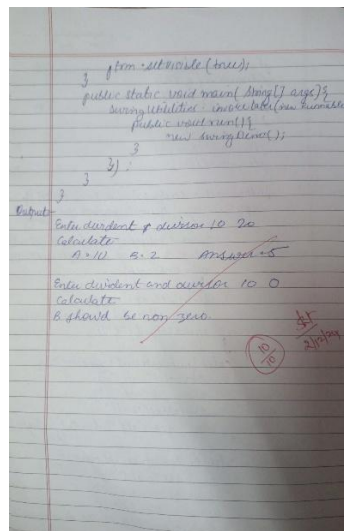 jfrm.setvisible(true);
}
public static void main(String[] args){
SwingUtilities.invokeLater(new Runnable
public void run(){
new SwingDemo();
}
});
}
}
Output:-
Enter divident & divisor 10 20
Calculate
A=10 B=2 Answer=5
Enter divident and divisor 10 0
Calculate
B should be non zero.
10/10
2/12/24